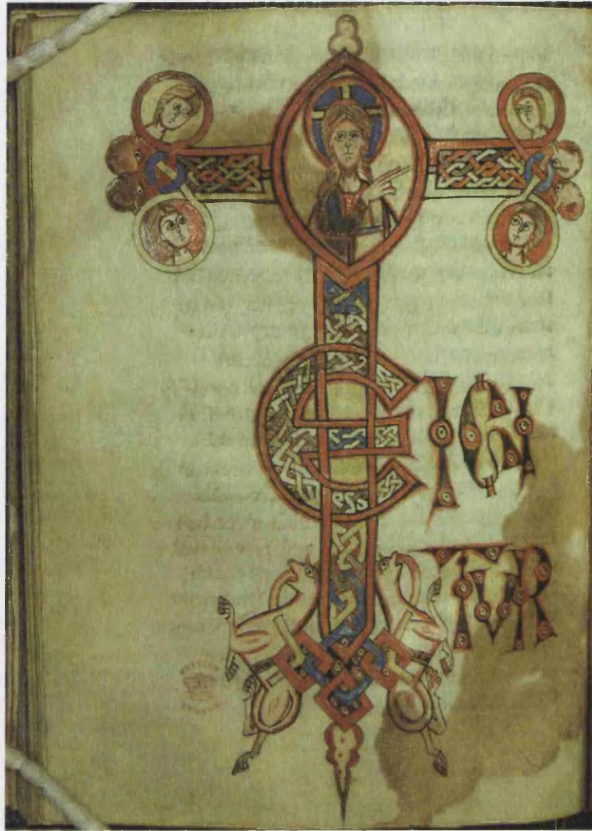 TEIGI
TVR